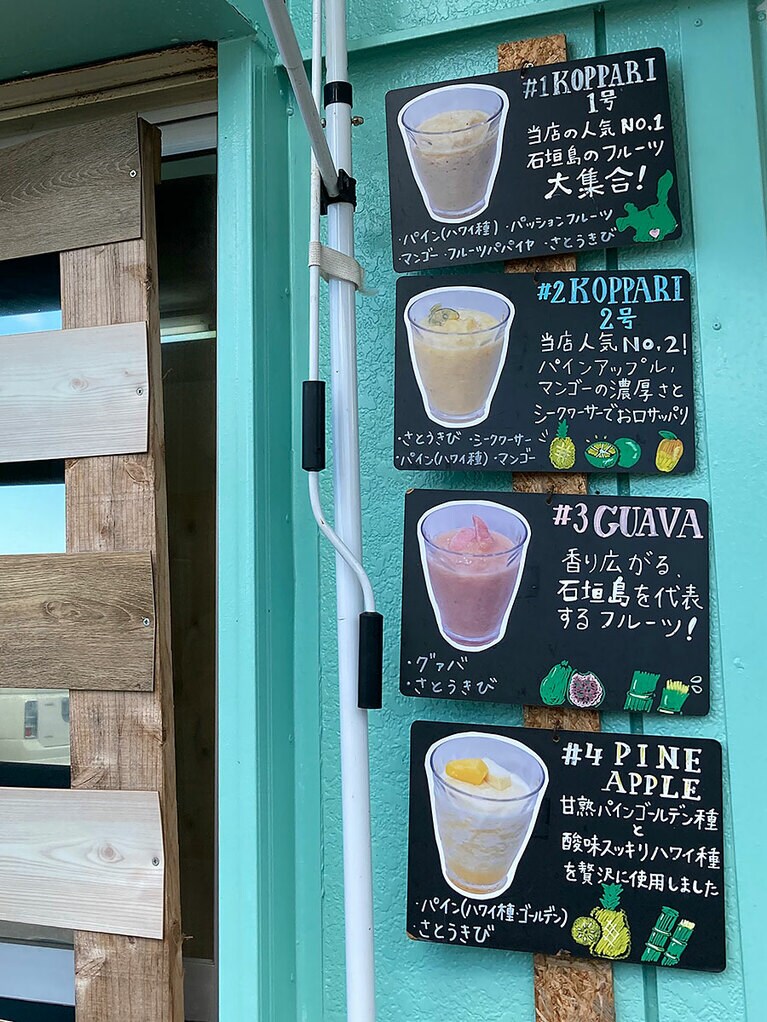 #1 KOPPARI
1号
当店の人気 NO.1
石垣島のフルーツ
大集合!
・パイン(ハワイ種)・パッションフルーツ
・マンゴー・フルーツパパイヤ・さとうきび
#2 KOPPARI
2号
当店人気 NO.2!
パインアップル,
マンゴーの濃厚さと
シークヮーサーでお口サッパリ
・さとうきび・シークヮーサー
・パイン(ハワイ種)・マンゴー
#3 GUAVA
香り広がる、
石垣島を代表
するフルーツ!
・グァバ
・さとうきび
#4 PINE
APPLE
甘熟パインゴールデン種
と
酸味スッキリハワイ種
を贅沢に使用しました
・パイン(ハワイ種・ゴールデン)
・さとうきび